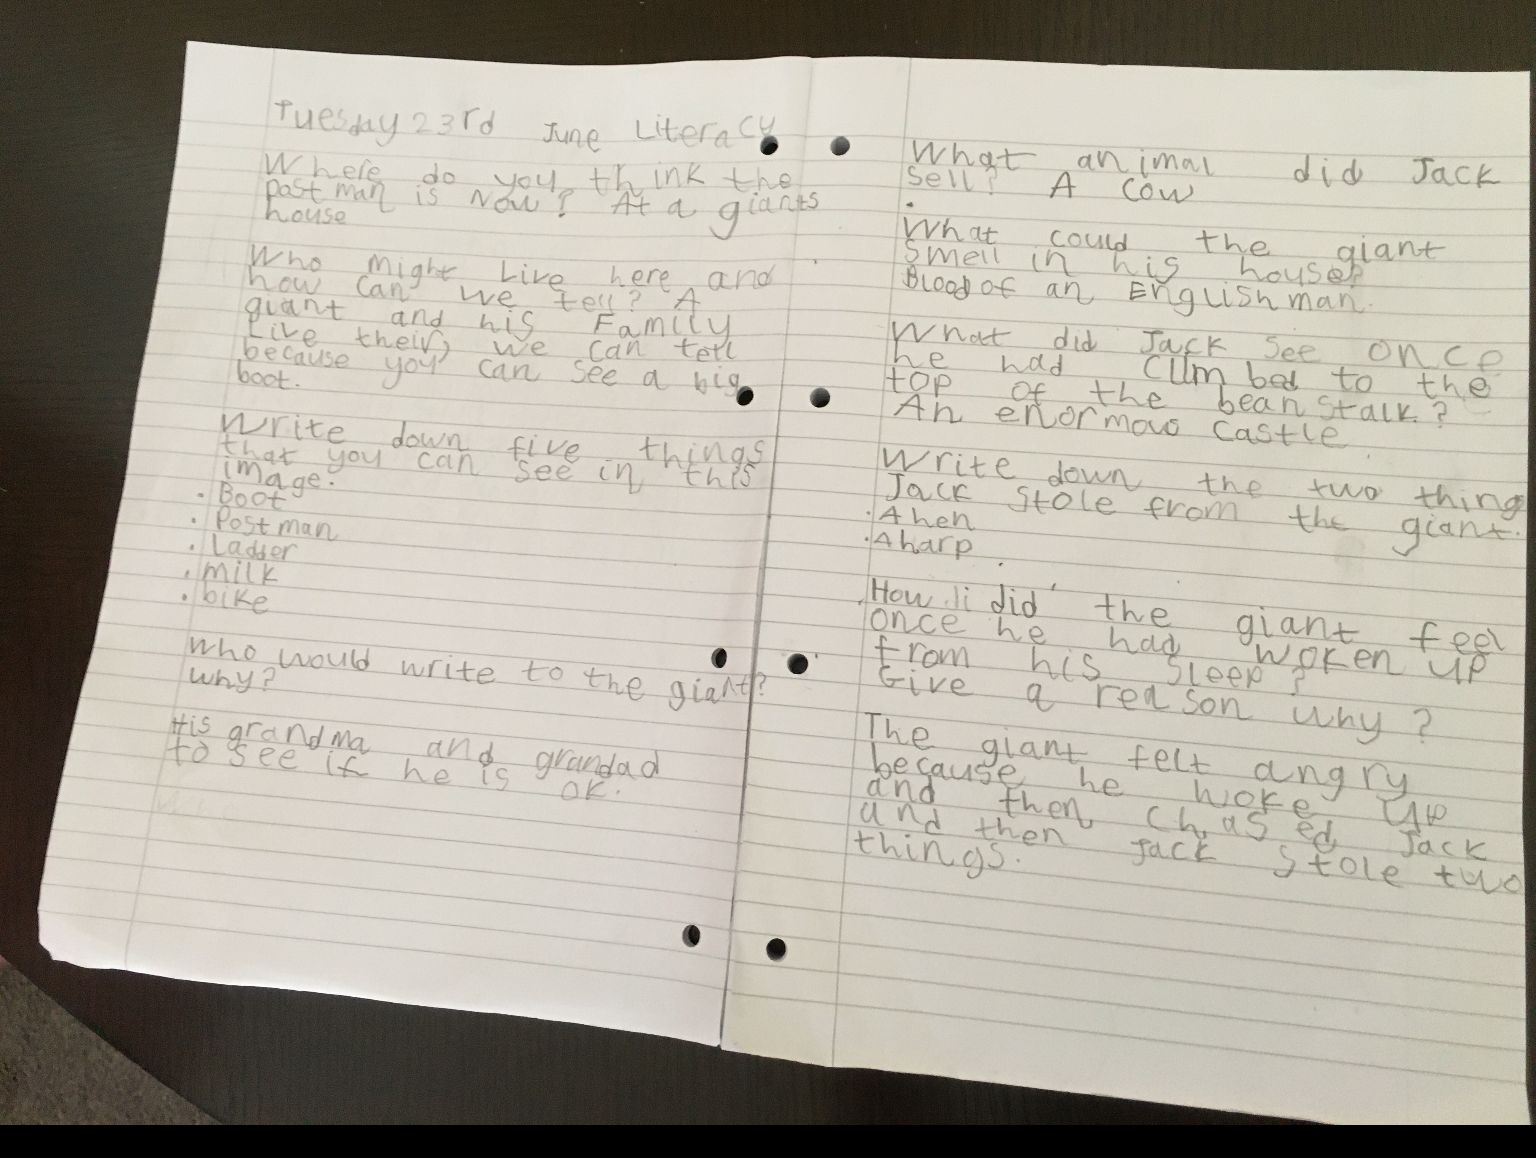 Tuesday 23rd June Literacy
Where do you think the
postman is now? At a giants
house
Who might Live here and
how can we tell? A
giant and his Family
Live their, we can tell
because you can see a big
boot.
Write down five things
that you can see in this
image.
. Boot
. Postman
. Ladder
. milk
. bike
Who would write to the giant?
why?
His grandma and grandad
to see if he is ok.
What animal did Jack
sell? A cow
What could the giant
smell in his house?
Blood of an Englishman.
What did Jack see once
he had climbed to the
top of the beanstalk?
An enormous castle
Write down the two thing
Jack stole from the giant.
. A hen
. A harp
How did the giant feel
once he had woken up
from his sleep?
Give a reason why?
The giant felt angry
because he woke up
and then chased Jack
and then Jack stole two
things.